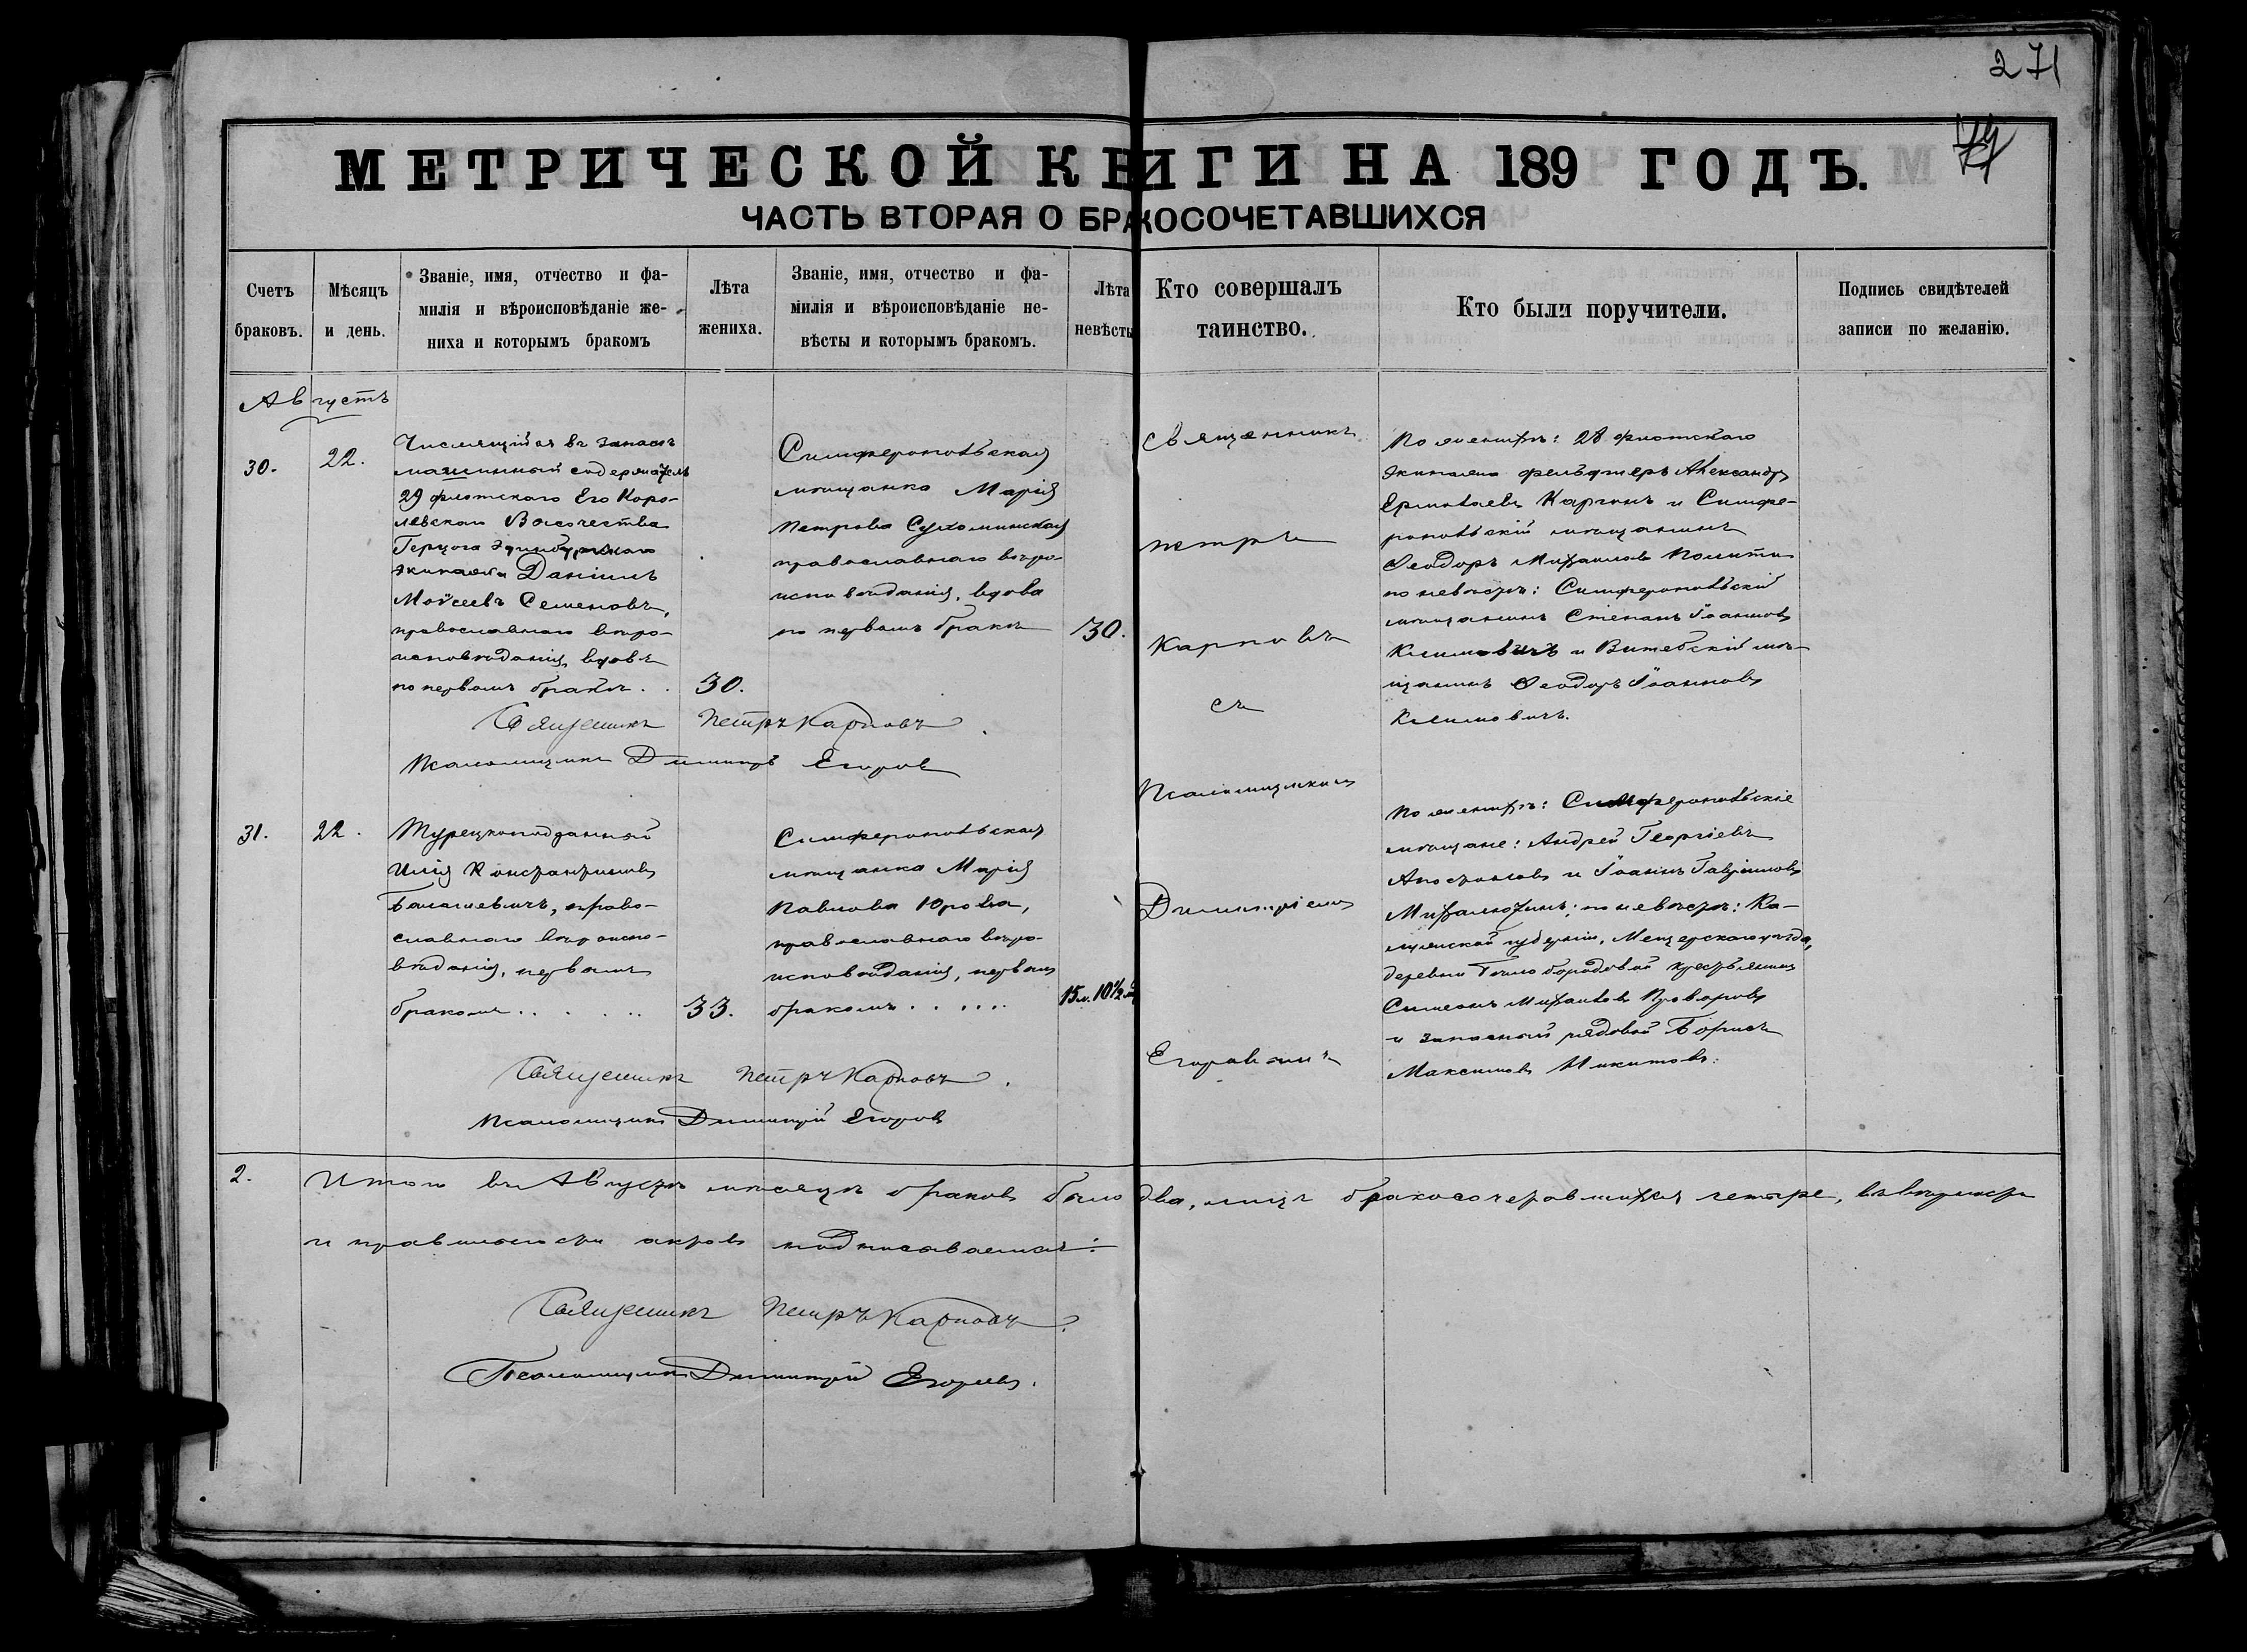 271
МЕТРИЧЕСКОЙ КНИГИ НА 189 ГОДЪ.
ЧАСТЬ ВТОРАЯ О БРАКОСОЧЕТАВШИХСЯ
Счетъ браковъ.
Мѣсяцъ и день.
Званіе, имя, отчество и фа-
милія и вѣроисповѣданіе же-
ниха и которымъ бракомъ
Лѣта
жениха.
Званіе, имя, отчество и фа-
милія и вѣроисповѣданіе не-
вѣсты и которымъ бракомъ.
Лѣта
невѣсты
Кто совершалъ
таинство.
Кто были поручители.
Подпись свидѣтелей
записи по желанію.
Августъ
30.
22.
Числящійся въ запасѣ
машинный содержатель
29 флотскаго Его Коро-
левскаго Высочества
Герцога Эдинбургскаго
экипажа Даніилъ
Моѵсеевъ Семеновъ,
православнаго вѣро-
исповѣданія, вдовъ
по первомъ бракѣ . .
30.
Симферопольская
мѣщанка Марія
Петрова Сухоминская
православнаго вѣро-
исповѣданія, вдова
по первомъ бракѣ
30.
Священникъ
Петръ
Карповъ
съ
Псаломщикомъ
Димитріемъ
Егоровымъ
По женихѣ: 28 флотскаго
экипажа фельдшеръ Александръ
Карпинъ и Симфе-
ропольскій мѣщанинъ
Ѳеодоръ Михаиловъ
по невѣстѣ: Симферопольскій
мѣщанинъ Стефанъ Іоанновъ
Климовичъ и Витебскій мѣ-
щанинъ Ѳеодоръ Іоанновъ
Климовичъ.
Священникъ Петръ Карповъ.
Псаломщикъ Димитрій Егоровъ
31.
22.
Турецкоподданный
Илія Константиновъ
православ-
славнаго вѣроиспо-
вѣданія, первымъ
бракомъ . . . . .
33.
Симферопольская
мѣщанка Марія
Павлова Юрова,
православнаго вѣро-
исповѣданія, первымъ
бракомъ . . . . .
15 л. 10½ м.
По женихѣ: Симферопольскіе
мѣщане: Андрей Георгіевъ
Апостоловъ и Іоаннъ Гавріиловъ
по невѣстѣ: Ка-
губерніи, уѣзда,
деревни крестьянинъ
Симеонъ Михаиловъ
и запасный рядовой Борисъ
Максимовъ Никитовъ.
Священникъ Петръ Карповъ.
Псаломщикъ Димитрій Егоровъ
2.
Итого въ Августѣ мѣсяцѣ браковъ было два, лицъ бракосочетавшихся четыре, въ вѣрности
и правильности актовъ подписываемся:
Священникъ Петръ Карповъ.
Псаломщикъ Димитрій Егоровъ.